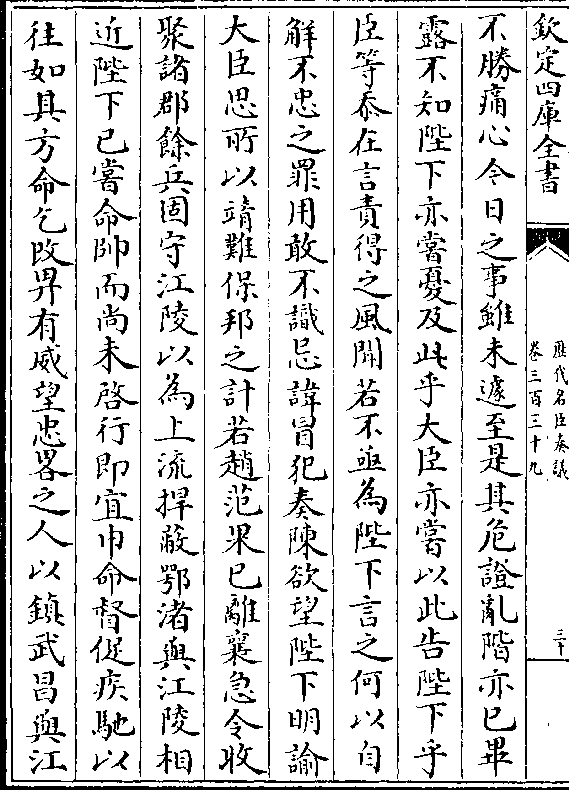 欽定四庫全書
歴代名臣奏議
卷三百三十九
三十
不勝痛心今日之事雖未遽至是其危證亂階亦已畢
露不知陛下亦嘗憂及此乎大臣亦嘗以此告陛下乎
臣等忝在言責得之風聞若不亟為陛下言之何以自
解不忠之罪用敢不識忌諱冒犯奏陳欲望陛下明諭
大臣思所以靖難保邦之計若趙范果已離襄急令收
聚諸郡餘兵固守江陵以為上流捍蔽鄂渚與江陵相
近陛下已嘗命帥而尚未啓行即宜申命督促疾馳以
往如其方命乞改畀有威望忠畧之人以鎮武昌與江